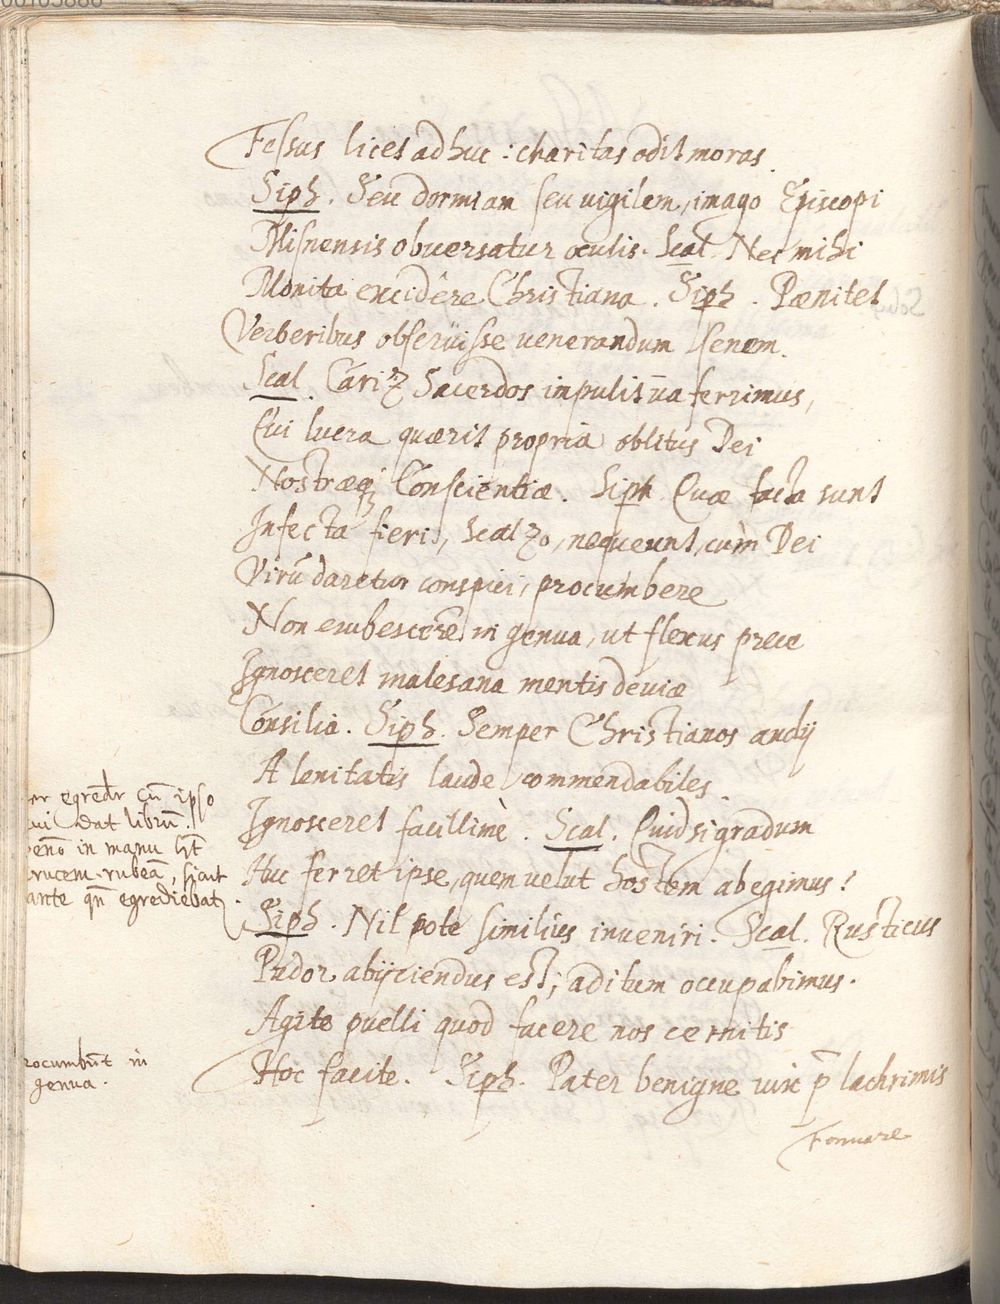 Fessus licet adhuc : charitas odit moras
Siph. Seu dormiam seu vigilem, imago Episcopi
Misnensis obuersatur oculis. Scal. Nec mihi
Monita excidêre Christiana. Siph. Pænitet
Verberibus obscuisse uenerandum senem.
Scal. Sacerdos impulit ferrimus,
Cui lucra quærit propria oblitus Dei
Nostræq; Conscientiæ. Siph. Quæ facta sunt
Infecta fieri, Scalzo, nequeunt, cùm Dei
Virū daretur conspici, procumbere
Non erubescerē in genua, ut flexus prece
Ignosceret malesana mentis deuiæ
Consilia. Siph. Semper Christianos audij
A lenitatis laude commendabiles.
Ignosceret facillimè. Scal. Quid si gradum
Huc ferret ipse, quem uelut hostem abegimus?
Siph. Nil pote similius inueniri. Scal. Rusticus
Pudor abijciendus est; aditum occupabimus.
Agite puelli quod facere nos cernitis
Hoc facite. Siph. Pater benigne uix p̄ lachrimis
Formare
er egredr cū ipso
ui dat librū.
in manu
rucem rubeā, sicut
ante qn̄ egrediebat
rocumbūt in
genua.